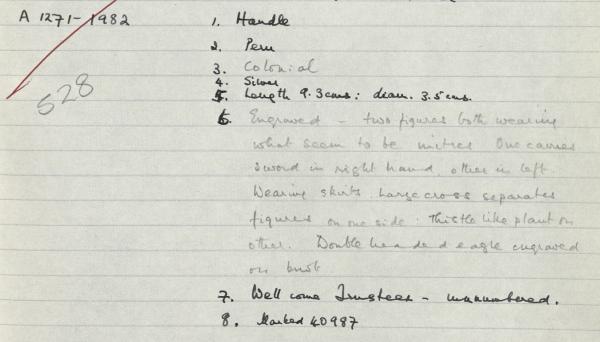 A 1271-1982
528
1. Handle
2. Peru
3. Colonial
4. Silver
5. Length 9.3cms: diam. 3.5cms.
6. Engraved - two figures both wearing
what seem to be mitres One carries
sword in right hand, other in left.
Wearing skirts. Large cross separates
figures on one side: thistle like plant on
other. Double headed eagle engraved
on
7. Wellcome Trustees - unnumbered.
8. Marked 40987